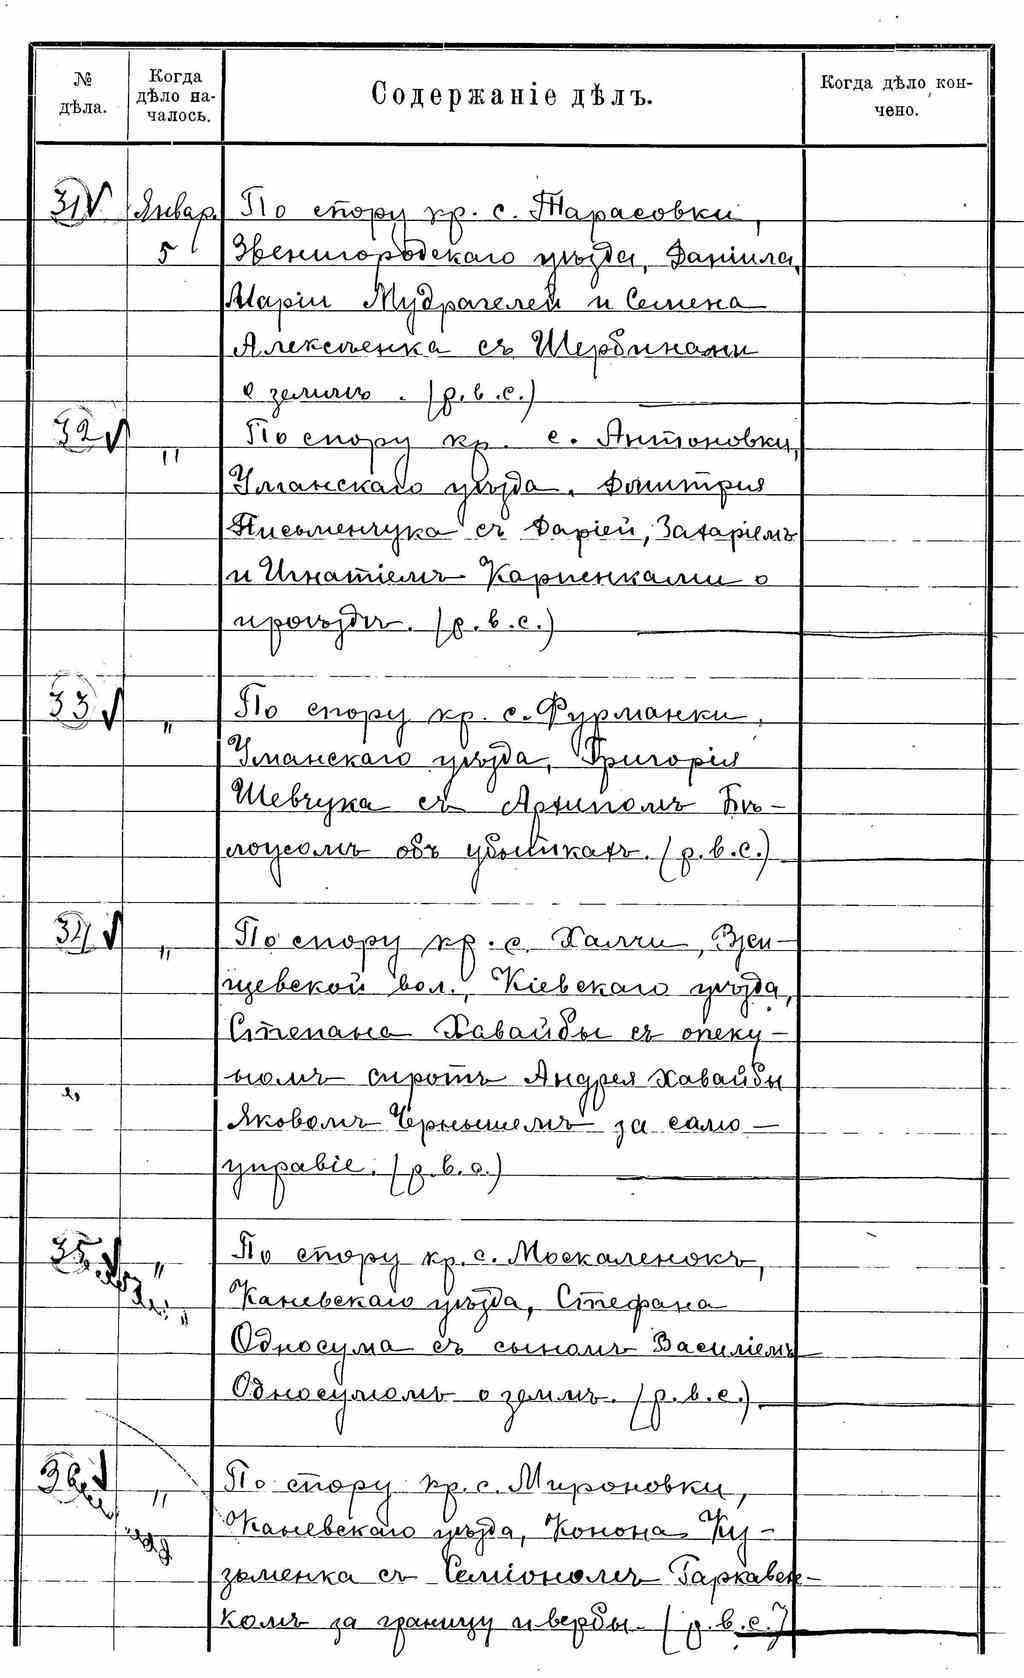 № дѣла.
Когда дѣло на-
чалось.
Содержаніе дѣлъ.
Когда дѣло кон-
чено.
31 Январ. 5 По спору кр. с. Тарасовки,
Звенигородскаго уѣзда, Даніила,
Маріи Мудрагелей и Семена
Алексѣенка съ Щербинами
о землѣ. (р.в.с.)
32 " По спору кр. с. Антоновки,
Уманскаго уѣзда, Дмитрія
Письменчука съ Даріей, Захаріемъ
и Игнатіемъ Карпенками о
проѣздѣ. (р.в.с.)
33 " По спору кр. с. Фурманки,
Уманскаго уѣзда, Григорія
Шевчука съ Архипомъ Бѣ-
лоусомъ объ убыткахъ. (р.в.с.)
34 " По спору кр. с. Халчи,
щевской вол., Кіевскаго уѣзда,
Степана Хавайбы съ опеку-
номъ сиротъ Андрея Хавайбы
Яковомъ Чернышемъ за само-
управіе. (р.в.с.)
35 " По спору кр. с. Москаленокъ,
Каневскаго уѣзда, Стефана
Односума съ сыномъ Василіемъ
Односумомъ о землѣ. (р.в.с.)
36 " По спору кр. с. Мироновки,
Каневскаго уѣзда, Конона Ку-
зьменка съ Семіономъ Гаркавен-
комъ за границу и вербы. (р.в.с.)